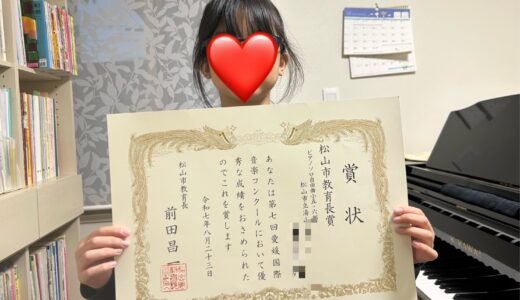 賞状
松山市教育長賞
ピアノソロ自由曲小五・六
松山市立湯山
あなたは第七回愛媛国際
音楽コンクールにおいて優
秀な成績をおさめられた
のでこれを賞します
令和七年八月二十三日
松山市教育長
前田昌一
KAWAI